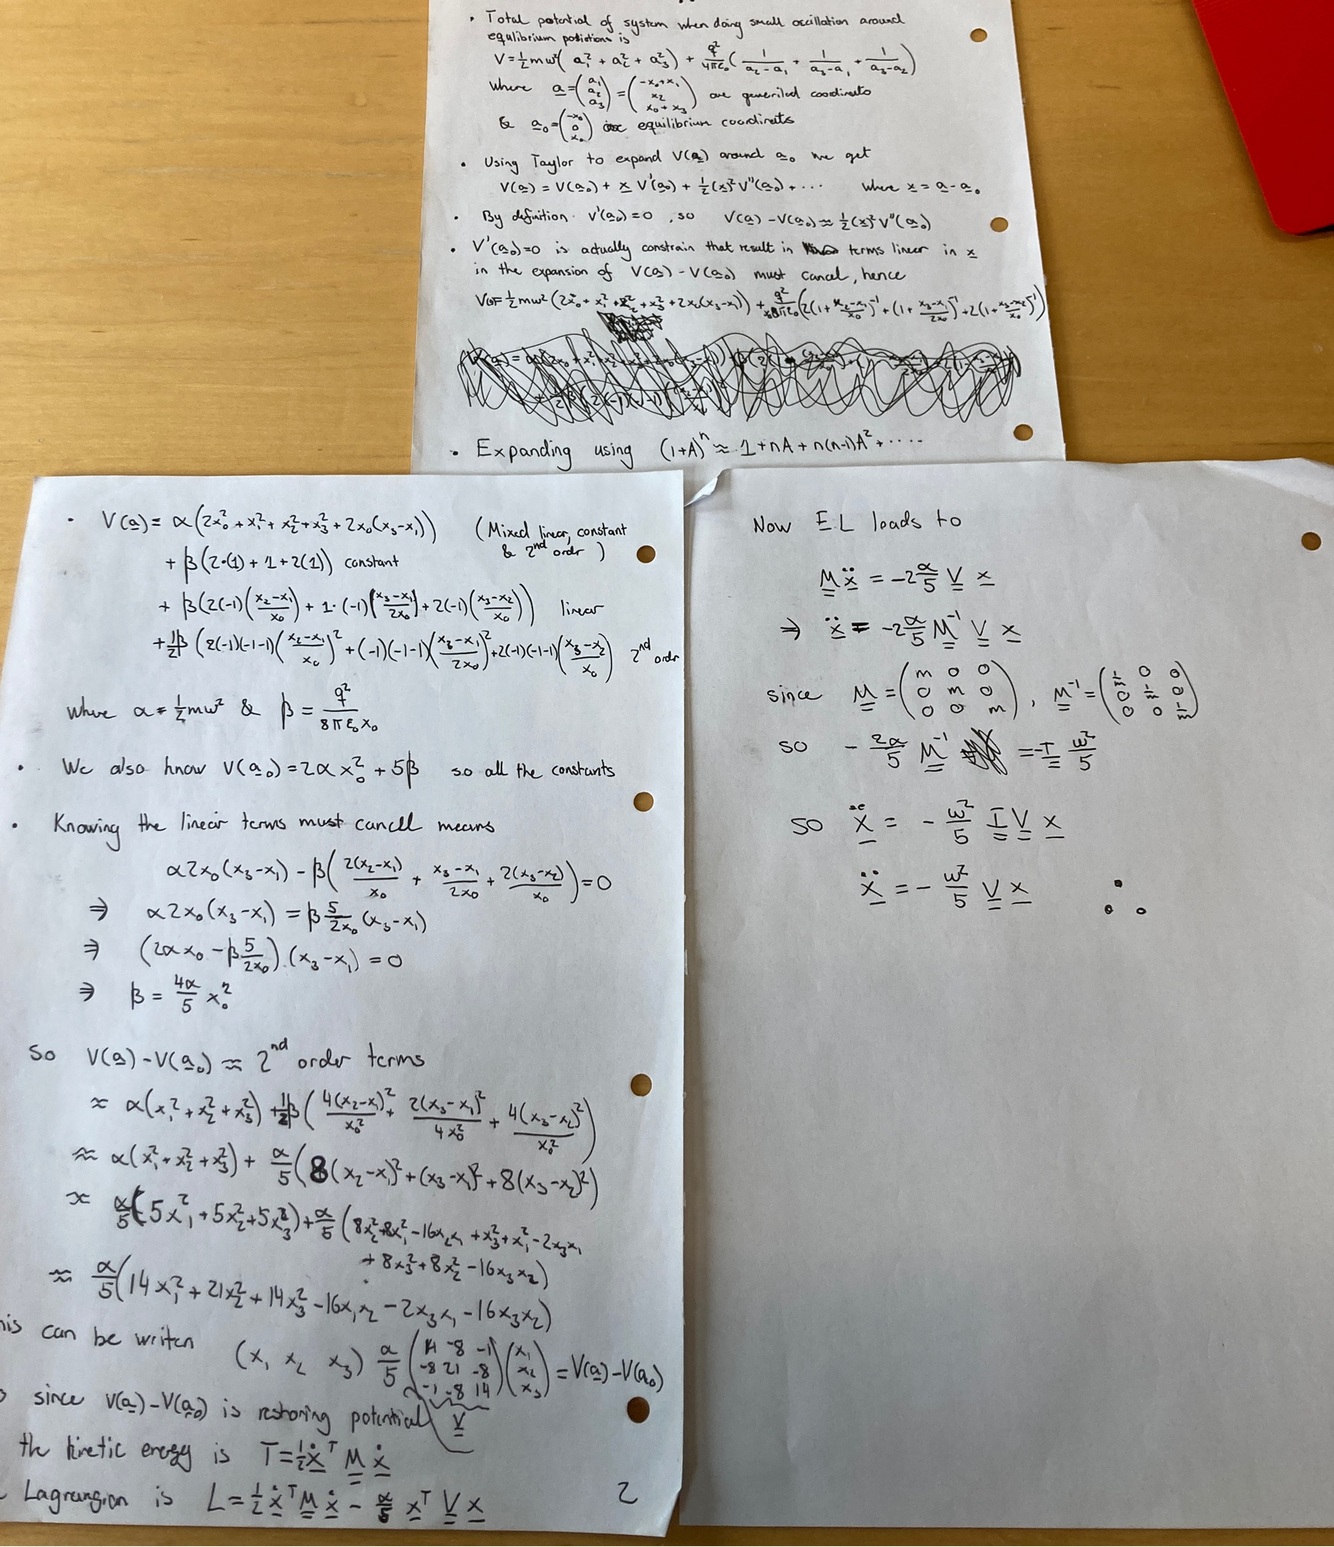 • Total potential of system when doing small oscillation around
equlibrium positions is
V = ½mω²(a₁² + a₂² + a₃²) + q²/4πε₀ (1/(a₂-a₁) + 1/(a₃-a₁) + 1/(a₃-a₂))
where a = (a₁ a₂ a₃) = (-x₀+x₁ x₂ x₀+x₃) are generiled coordinates
& a₀ = (-x₀ 0 x₀) are equilibrium coordinates
• Using Taylor to expand V(a) around a₀ we get
V(a) = V(a₀) + x V'(a₀) + ½(x)² V''(a₀) + ... where x = a - a₀
• By definition V'(a₀) = 0, so V(a) - V(a₀) ≈ ½(x)² V''(a₀)
• V'(a₀)=0 is actually constrain that result in terms linear in x
in the expansion of V(a) - V(a₀) must cancel, hence
V(a) = ½mω²(2x₀² + x₁² + x₂² + x₃² + 2x₀(x₃-x₁)) + q²/8πε₀x₀ (2(1+(x₂-x₁)/x₀)⁻¹ + (1+(x₃-x₁)/2x₀)⁻¹ + 2(1+(x₃-x₂)/x₀)⁻¹)
• Expanding using (1+A)ⁿ ≈ 1 + nA + n(n-1)A² + ....
• V(a) = α(2x₀² + x₁² + x₂² + x₃² + 2x₀(x₃-x₁)) (Mixed linear, constant
& 2nd order)
+ β(2·(1) + 1 + 2(1)) constant
+ β(2(-1)((x₂-x₁)/x₀) + 1·(-1)((x₃-x₁)/2x₀) + 2(-1)((x₃-x₂)/x₀)) linear
+ ½β(2(-1)(-1-1)((x₂-x₁)/x₀)² + (-1)(-1-1)((x₃-x₁)/2x₀)² + 2(-1)(-1-1)((x₃-x₂)/x₀) 2nd order
where α = ½mω² & β = q²/8πε₀x₀
• We also know V(a₀) = 2αx₀² + 5β so all the constants
• Knowing the linear terms must cancell means
α2x₀(x₃-x₁) - β(2(x₂-x₁)/x₀ + (x₃-x₁)/2x₀ + 2(x₃-x₂)/x₀) = 0
⇒ α2x₀(x₃-x₁) = β 5/2x₀ (x₃-x₁)
⇒ (2αx₀ - β 5/2x₀).(x₃-x₁) = 0
⇒ β = 4α/5 x₀²
So V(a) - V(a₀) ≈ 2nd order terms
≈ α(x₁² + x₂² + x₃²) + ½β(4(x₂-x₁)²/x₀² + 2(x₃-x₁)²/4x₀² + 4(x₃-x₂)²/x₀²)
≈ α(x₁² + x₂² + x₃²) + α/5 (8(x₂-x₁)² + (x₃-x₁)² + 8(x₃-x₂)²)
≈ α/5 (5x₁² + 5x₂² + 5x₃²) + α/5 (8x₂² + 8x₁² - 16x₂x₁ + x₃² + x₁² - 2x₃x₁
+ 8x₃² + 8x₂² - 16x₃x₂)
≈ α/5 (14x₁² + 21x₂² + 14x₃² - 16x₁x₂ - 2x₃x₁ - 16x₃x₂)
his can be writen (x₁ x₂ x₃) α/5 (14 -8 -1 -8 21 -8 -1 -8 14) (x₁ x₂ x₃) = V(a) - V(a₀)
since V(a) - V(a₀) is restoring potential V
the kinetic energy is T = ½ẋᵀ M ẋ
Lagrangian is L = ½ẋᵀ M ẋ - α/5 xᵀ V x
2
Now EL leads to
M ẍ = -2α/5 V x
⇒ ẍ = -2α/5 M⁻¹ V x
since M = (m 0 0 0 m 0 0 0 m), M⁻¹ = (1/m 0 0 0 1/m 0 0 0 1/m)
so - 2α/5 M⁻¹ = -I ω²/5
so ẍ = - ω²/5 I V x
ẍ = - ω²/5 V x ∴